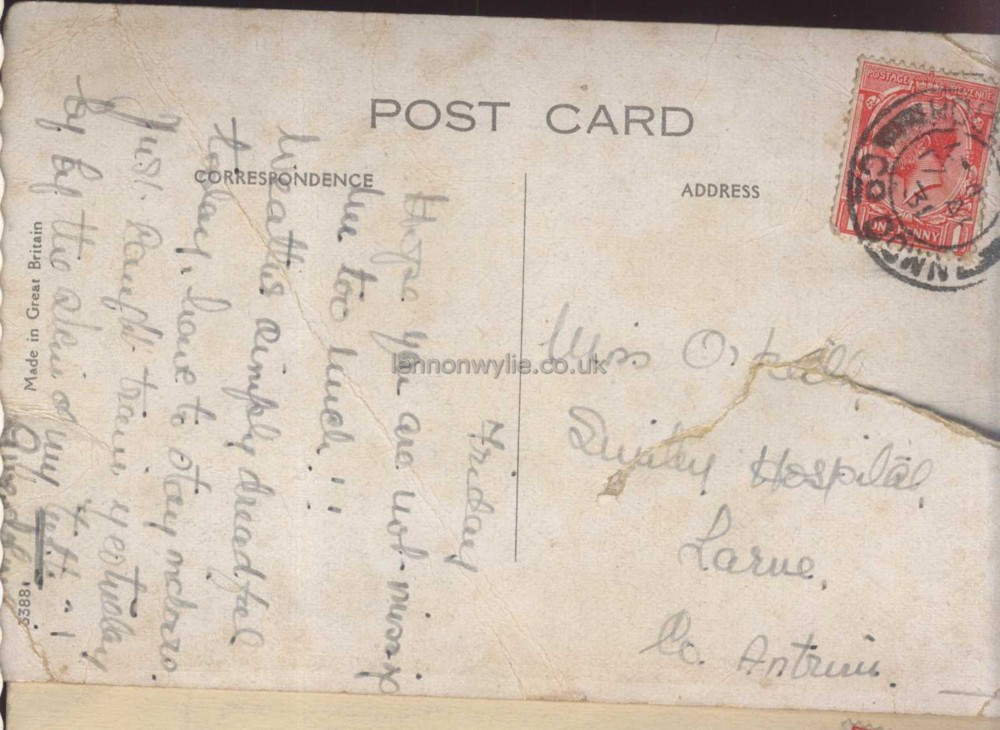 POST CARD
CORRESPONDENCE
ADDRESS
Made in Great Britain
33881
Friday
Hope you are not missing
me too much!!
Weather simply dreadful
today, have to stay indoors.
Just caught train yesterday
by the skin of my teeth!
Miss
Hospital,
Larne,
Co. Antrim.
POSTAGE REVENUE
ONE PENNY
CO. DOWN
lennonwylie.co.uk